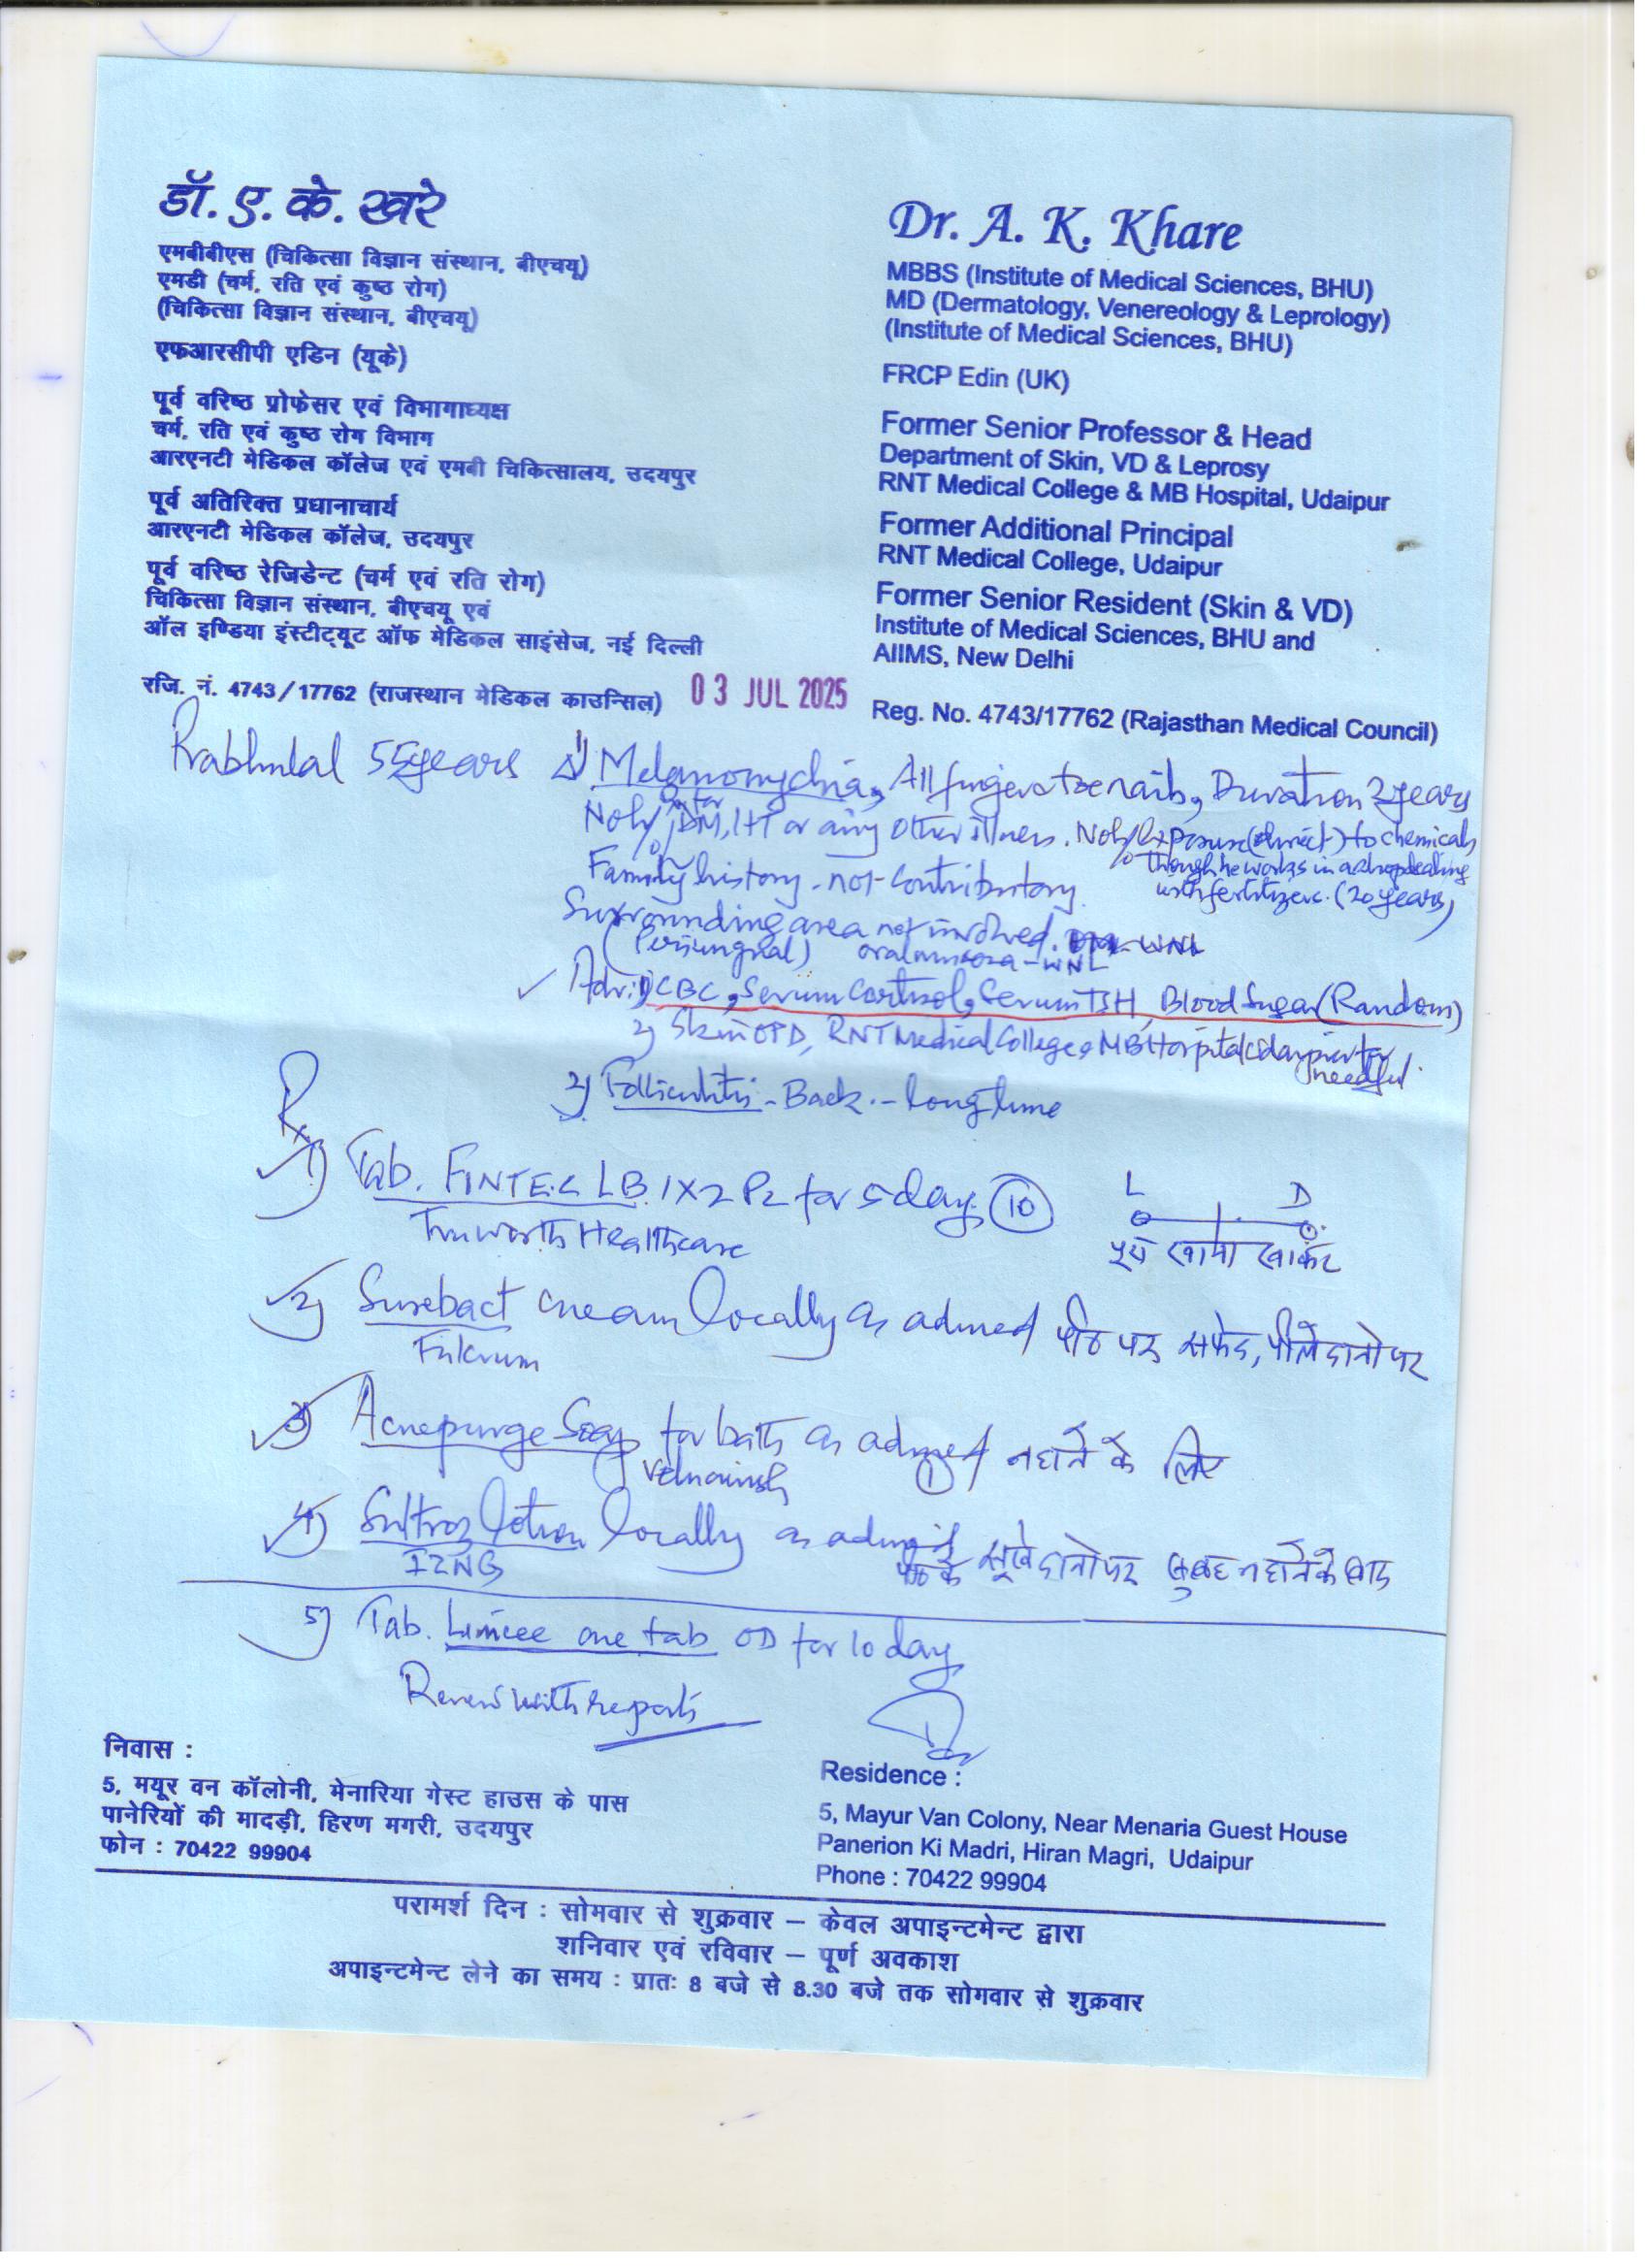 डॉ. ए. के. खरे
एमबीबीएस (चिकित्सा विज्ञान संस्थान, बीएचयू)
एमडी (चर्म, रति एवं कुष्ठ रोग)
(चिकित्सा विज्ञान संस्थान, बीएचयू)
एफआरसीपी एडिन (यूके)
पूर्व वरिष्ठ प्रोफेसर एवं विभागाध्यक्ष
चर्म, रति एवं कुष्ठ रोग विभाग
आरएनटी मेडिकल कॉलेज एवं एमबी चिकित्सालय, उदयपुर
पूर्व अतिरिक्त प्रधानाचार्य
आरएनटी मेडिकल कॉलेज, उदयपुर
पूर्व वरिष्ठ रेजिडेन्ट (चर्म एवं रति रोग)
चिकित्सा विज्ञान संस्थान, बीएचयू एवं
ऑल इण्डिया इंस्टीट्यूट ऑफ मेडिकल साइंसेज, नई दिल्ली
रजि. नं. 4743/17762 (राजस्थान मेडिकल काउन्सिल)
Dr. A. K. Khare
MBBS (Institute of Medical Sciences, BHU)
MD (Dermatology, Venereology & Leprology)
(Institute of Medical Sciences, BHU)
FRCP Edin (UK)
Former Senior Professor & Head
Department of Skin, VD & Leprosy
RNT Medical College & MB Hospital, Udaipur
Former Additional Principal
RNT Medical College, Udaipur
Former Senior Resident (Skin & VD)
Institute of Medical Sciences, BHU and
AIIMS, New Delhi
Reg. No. 4743/17762 (Rajasthan Medical Council)
03 JUL 2025
Prabhulal 55 years 1) Melanonychia, All fingers toe nails, Duration 2 years
No h/o DM, HT or any other illness. No h/o exposure (direct) to chemicals
though he works in a shop dealing
with fertilizers. (20 years)
Family history - not contributory
Surrounding area not involved.
(Periungual) oral mucosa - WNL
Adv: 1) CBC, Serum Cortisol, Serum TSH, Blood Sugar (Random)
2) Skin OPD, RNT Medical College, MB Hospital Udaipur for
needful.
2) Folliculitis - Back - long time
Rx
1) Tab. FINTEC LB 1x2 Pc for 5 days (10)
L D
खाना खाकर
2) Surebact cream locally as advised पीठ पर सफेद, पीले दानो पर
Fulcrum
3) Acnepurge Soap for bath as advised नहाने के लिए
(1)
4) locally as advised
पीठ के सूखे दानो पर सुबह नहाने के बाद
5) Tab. Limcee one tab OD for 10 days
Review with reports
निवास :
5, मयूर वन कॉलोनी, मेनारिया गेस्ट हाउस के पास
पानेरियों की मादड़ी, हिरण मगरी, उदयपुर
फोन : 70422 99904
Residence :
5, Mayur Van Colony, Near Menaria Guest House
Panerion Ki Madri, Hiran Magri, Udaipur
Phone : 70422 99904
परामर्श दिन : सोमवार से शुक्रवार – केवल अपाइन्टमेन्ट द्वारा
शनिवार एवं रविवार – पूर्ण अवकाश
अपाइन्टमेन्ट लेने का समय : प्रातः 8 बजे से 8.30 बजे तक सोमवार से शुक्रवार